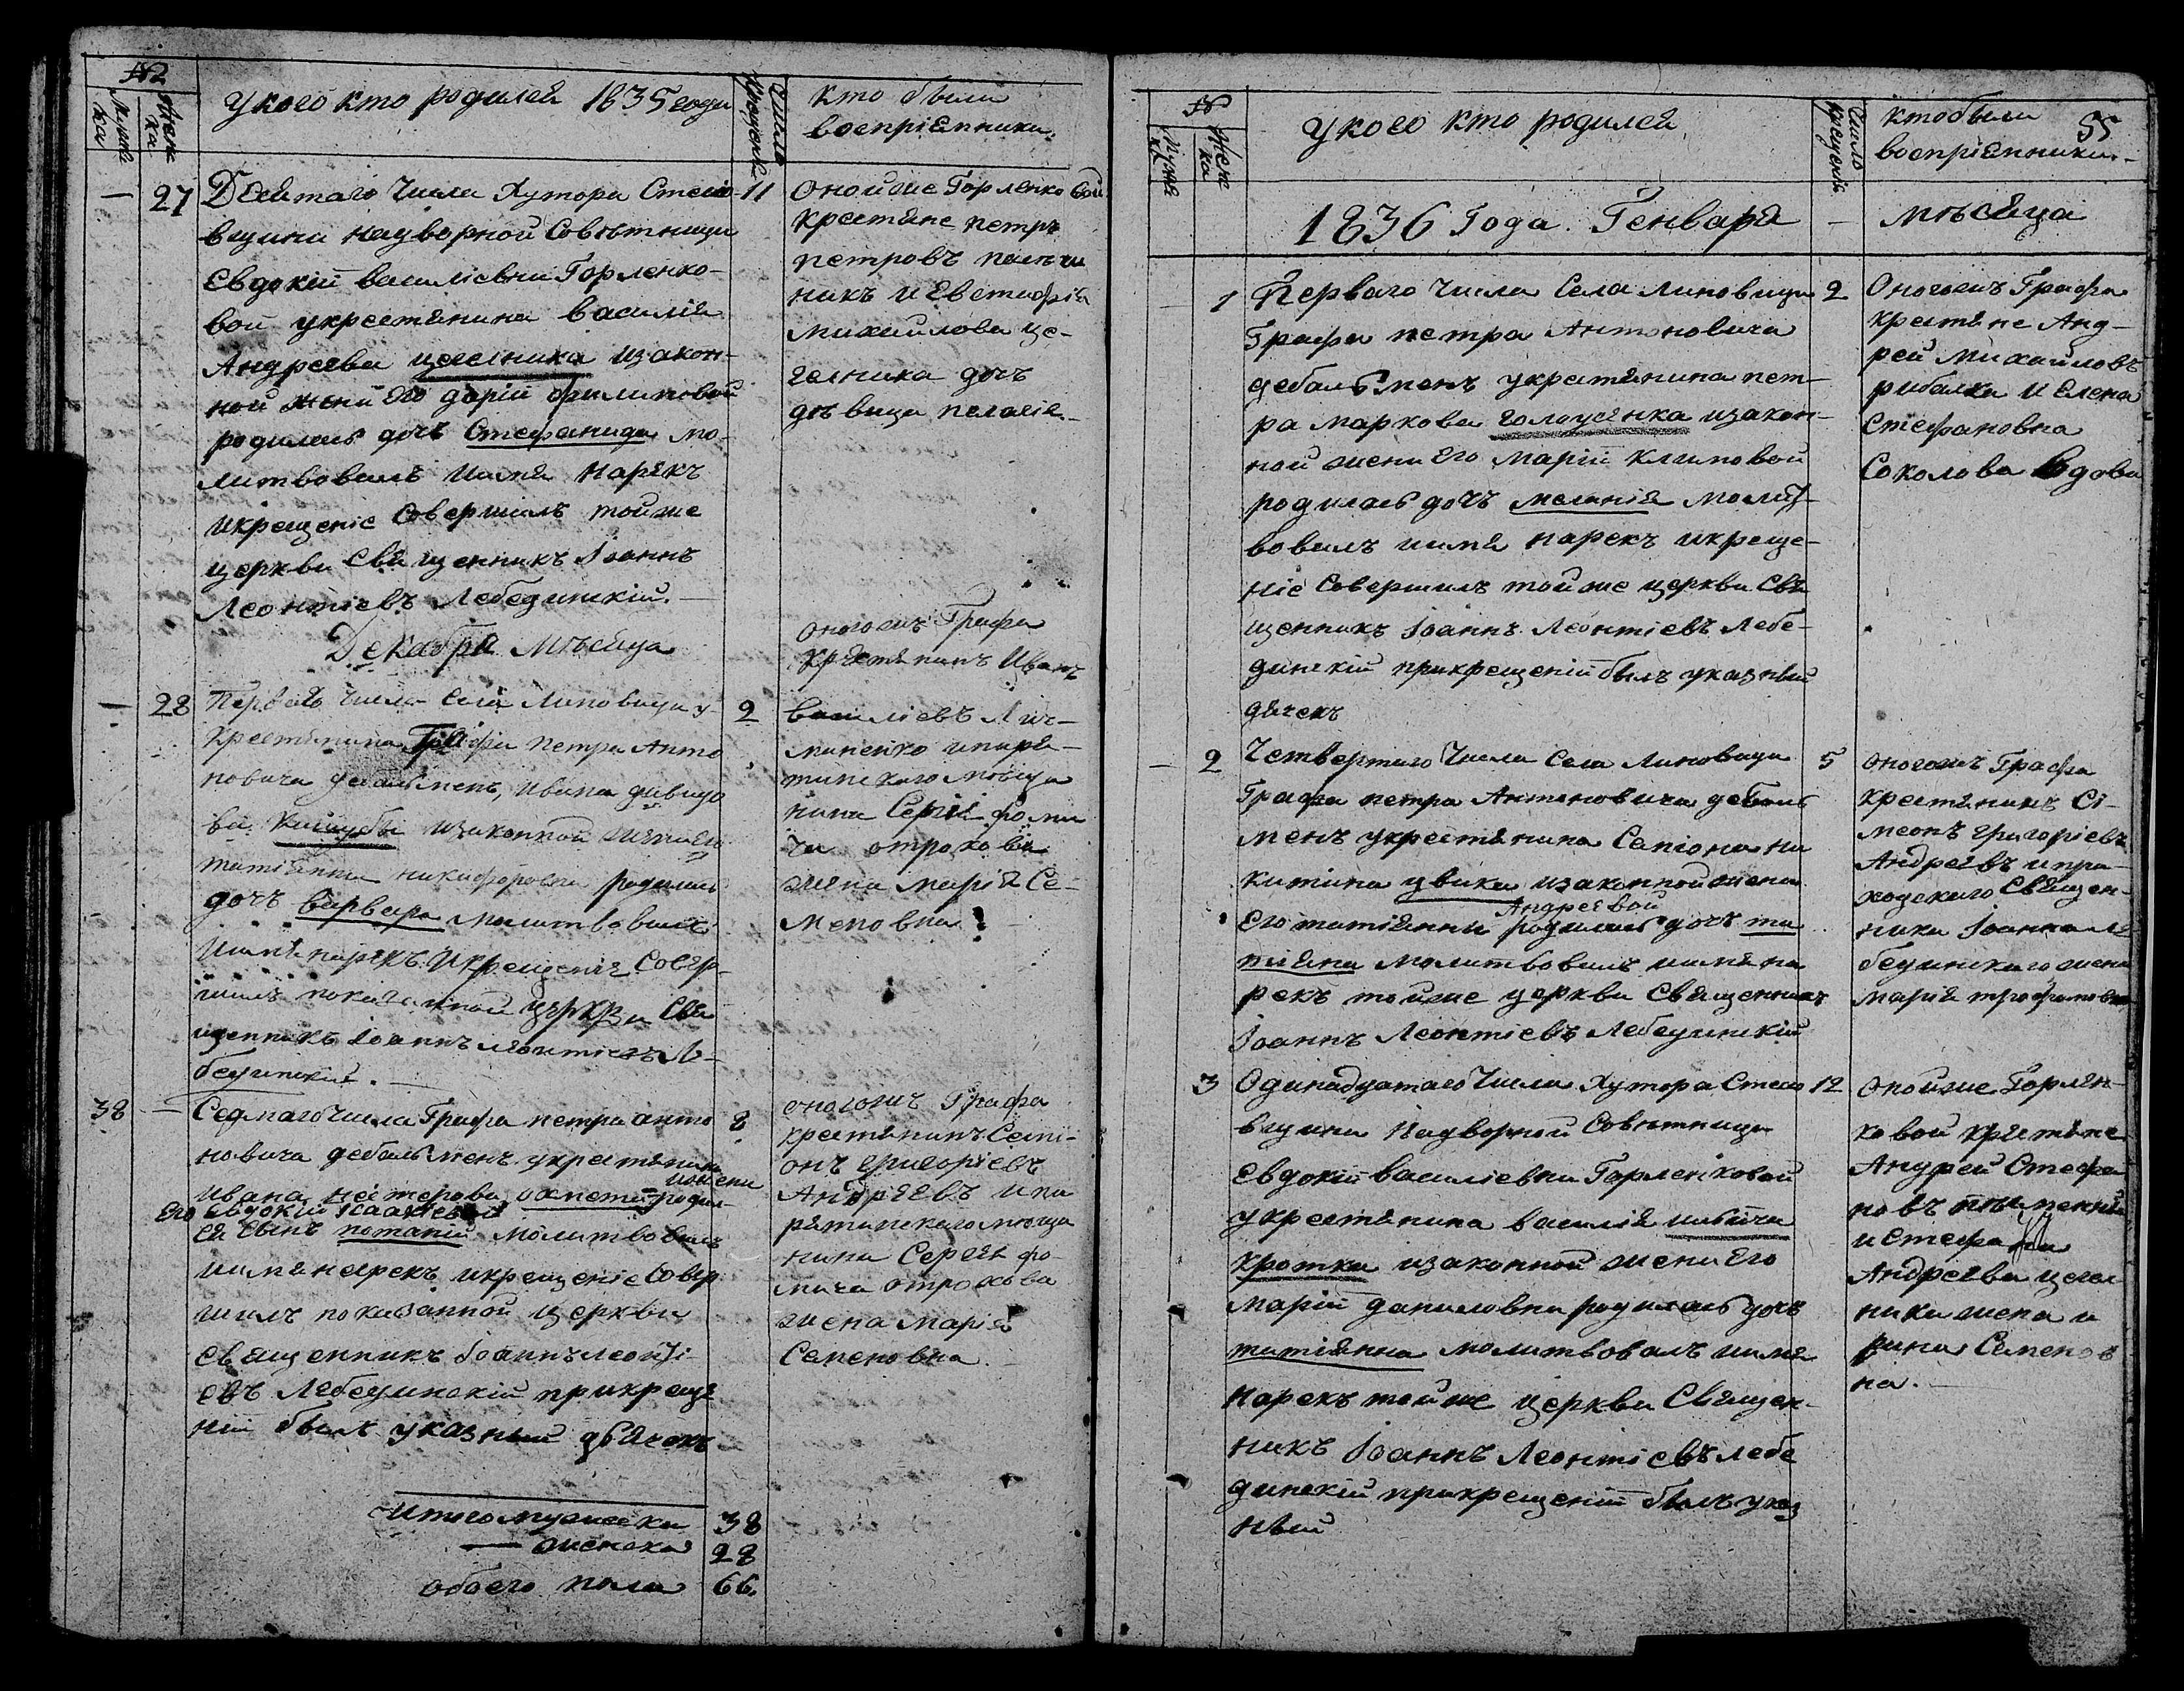 №
Мужеска
Женска
у кого кто родился 1835 года
Число Крещенія
кто были
воспріемники.
—
27
Десятаго Числа Хутора Стесю-
вщини надворной Совѣтници
Евдокіи василіевни Горленко-
вой у крестянина василія
Андреева из закон-
ной жени его даріи филиповой
родилась дочъ Стефанида мо-
литвовалъ имя нарекъ
и крещеніе Совершилъ тойже
церкви Священникъ Іоаннъ
Леонтіевъ Лебединскій. —
11
Онойже Горленковой
крестяне петръ
петровъ
никъ и Евстафія
михайлова це-
гелника дочъ
дѣвица пелагія
Декабря мѣсяца
—
28
Перваго числа села Линовици у
крестянина Графа Петра Анто
новича дебалменъ, ивана давидо
ва из законной жени его
татіянни никифоровни родилась
дочъ варвара молитвовалъ
имя нарекъ и крещеніе Совер-
шилъ показанной церкви Свя
щенникъ Іоаннъ леонтіевъ Ле-
бединскій. —
2
оногожъ Графа
крестянинъ Иванъ
василіевъ
миненко и
Сергія фоми
ча отрохова
жена марія Се-
меновна
38
—
Седмаго числа Графа петра анто
новича дебалменъ у крестянина
ивана нестерова из жени
его Евдокіи родил-
ся Синъ потапій молитвовалъ
имя нарекъ и крещеніе Совер
шилъ показанной церкви
священникъ Іоаннъ леонті-
евъ Лебединскій при креще
ніи былъ указный дьячокъ
8
оногожъ Графа
крестянинъ Семи-
онъ григоріевъ
Андреевъ и
нина Сергія фо-
мича отрохова
жена марія
Семеновна
Итого мужеска 38
— женска 28
обоего пола 66.
№
Мужеска
Женска
у кого кто родился
Число крещенія
кто были
воспріемники. —
55
1836 Года. Генваря — мѣсяца
—
1
Перваго числа Села линовици
Графа петра Антоновича
дебалменъ у крестянина пет-
ра маркова голоусенка из закон-
ной жени его маріи климовой
родилась дочъ меланія молит
вовалъ имя нарекъ и креще-
ніе Совершилъ тойже церкви Свя
щенникъ Іоаннъ Леонтіевъ Лебе-
динскій при крещеніи былъ указный
дячекъ
2
Оногожъ Графа
крестяне Анд-
рей михайловъ
рибалка и Елена
Стефановна
Соколова вдова
—
2
Четвертаго числа Села линовици
Графа петра Антоновича дебаль
менъ у крестянина Семіона ни
китина цвика из законной жени
Андреевой
Его татіянни родилась дочъ та
тіяна молитвовалъ имя на
рекъ тойже церкви Священникъ
Іоаннъ Леонтіевъ Лебединскій
5
оногожъ Графа
крестянинъ Сі-
меонъ григоріевъ
Андреевъ и при-
ходского Священ-
ника Іоанна ле
бединского жена
марія трофимовна
3
Одинадцатаго Числа Хутора Стесю
вщини Надворной Совѣтници
Евдокіи василіевни Горленковой
у крестянина василія
кротка из законной жени Его
маріи даниловни родилась дочъ
татіянна молитвовалъ имя
нарекъ тойже церкви Священ-
никъ Іоаннъ Леонтіевъ лебе
динскій при крещеніи былъ указ
ный
12
Онойже Горлен-
ковой крестяне
Андрей Стефа
новъ
и Стефана
Андреева цегел
ника жена и
рина Семенов
на. —